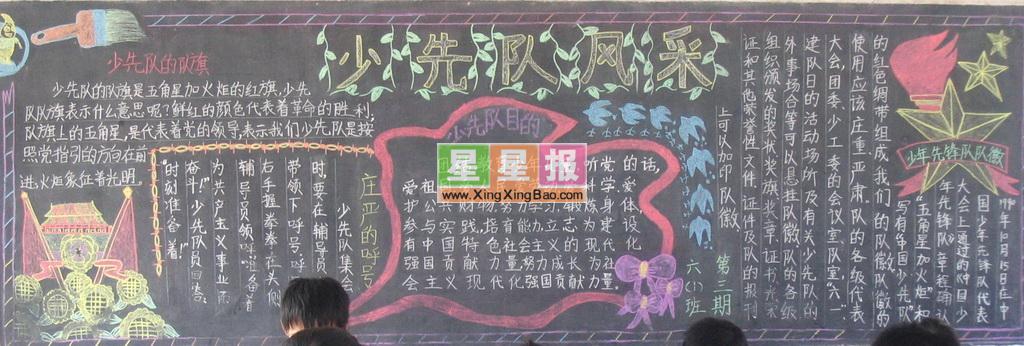 少先队风采
少先队的队旗
少先队的队旗是五角星加火炬的红旗,少先
队队旗表示什么意思呢?鲜红的颜色代表着革命的胜利,
队旗上的五角星,是代表着党的领导,表示我们少先队是按
照党指引的方向在前
进,火炬象征着光明。
庄严的呼号
少先队集会
时,要在辅导员
带领下呼号,呼号时
右手握拳举在头侧
辅导员领呼:"准备着
为共产主义事业而
奋斗!"少先队员回答:
"时刻准备着"
少先队目的
星星报
www.XingXingBao.com
的话,
爱祖
学习,立志
参与实践,培育能力,立志为现代化
强中国特色社会努力成长为社会
会主义现代化强国贡献力量
六(1)班
第三期
少年先锋队队徽
1990年10月15日在中
国少年先锋队代表
大会上通过的《中国少
年先锋队》章程确认
"五角星加火炬"和
写有"中国少先队"
的红色绸带组成我们的队徽,队徽的
使用应该庄重严肃。队的各级代表
大会,团委、少工委的会议室,队室,"六一",
建队日的活动场所及有关少先队的
外事场合等可以悬挂队徽;队的各级
组织颁发的奖状、奖旗、奖章、证书
证和其他荣誉性文件、证件及队的报刊
上可以加印队徽